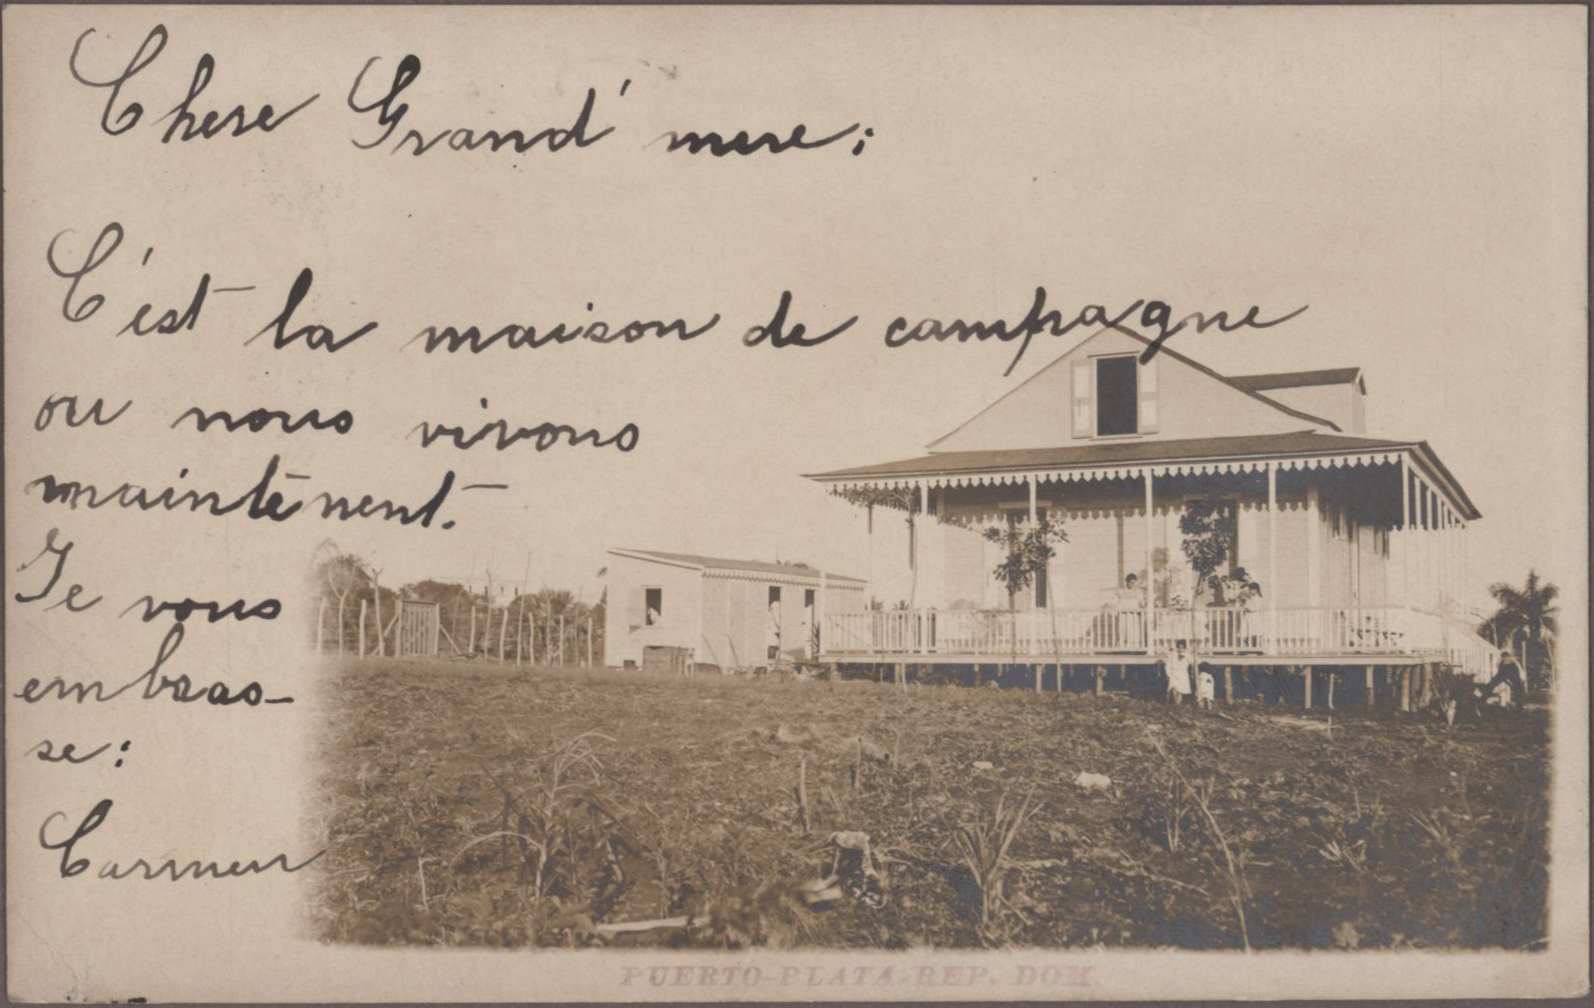 Chere Grand' mere;
C'est la maison de campagne
ou nous vivons
maintenent.
Je vous
embras-
se:
Carmen
PUERTO-PLATA-REP. DOM.